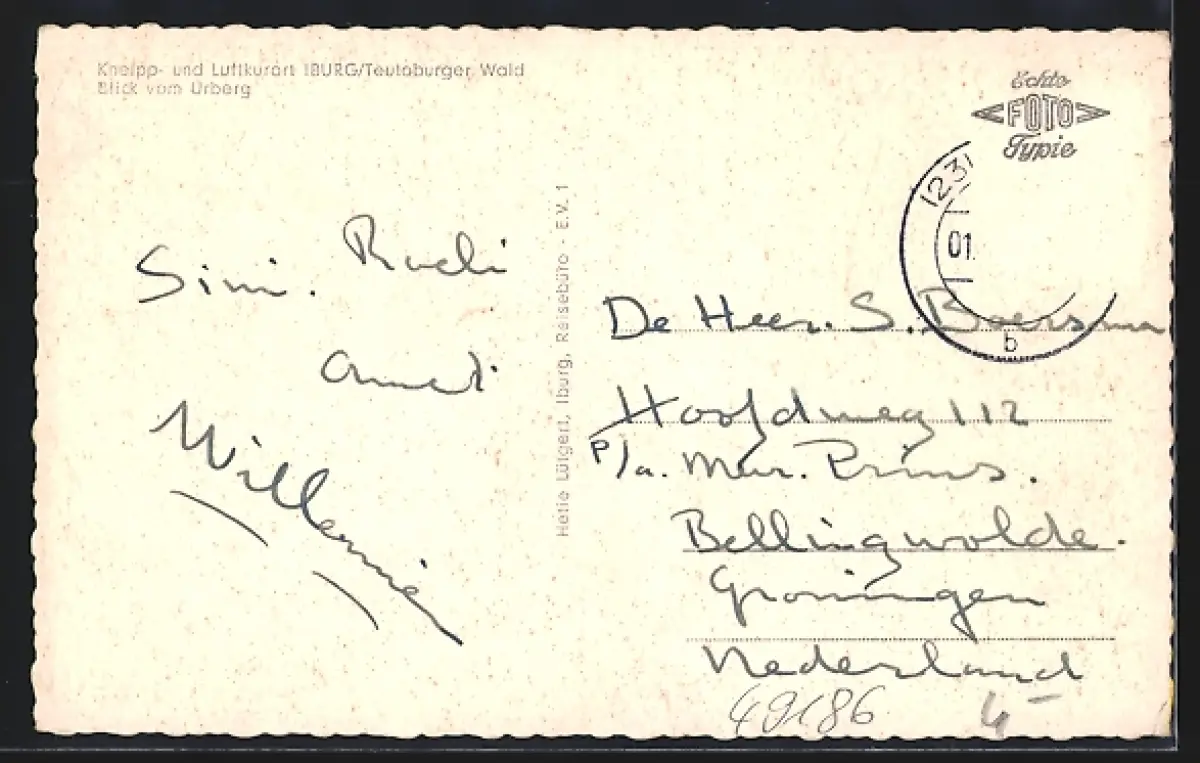 Kneipp- und Luftkurort IBURG/Teutoburger Wald
Blick vom Urberg
Echte
FOTO
Typie
1231
01.
b
Simi. Rudi
Willemien
Hetie Lütgert, Iburg, Reisebüro - E.V. 1
De Heer. S. Boersma
Hoofdweg 112
P/a. Mevr. Prins.
Bellingwolde.
Groningen
Nederland
49186
4-